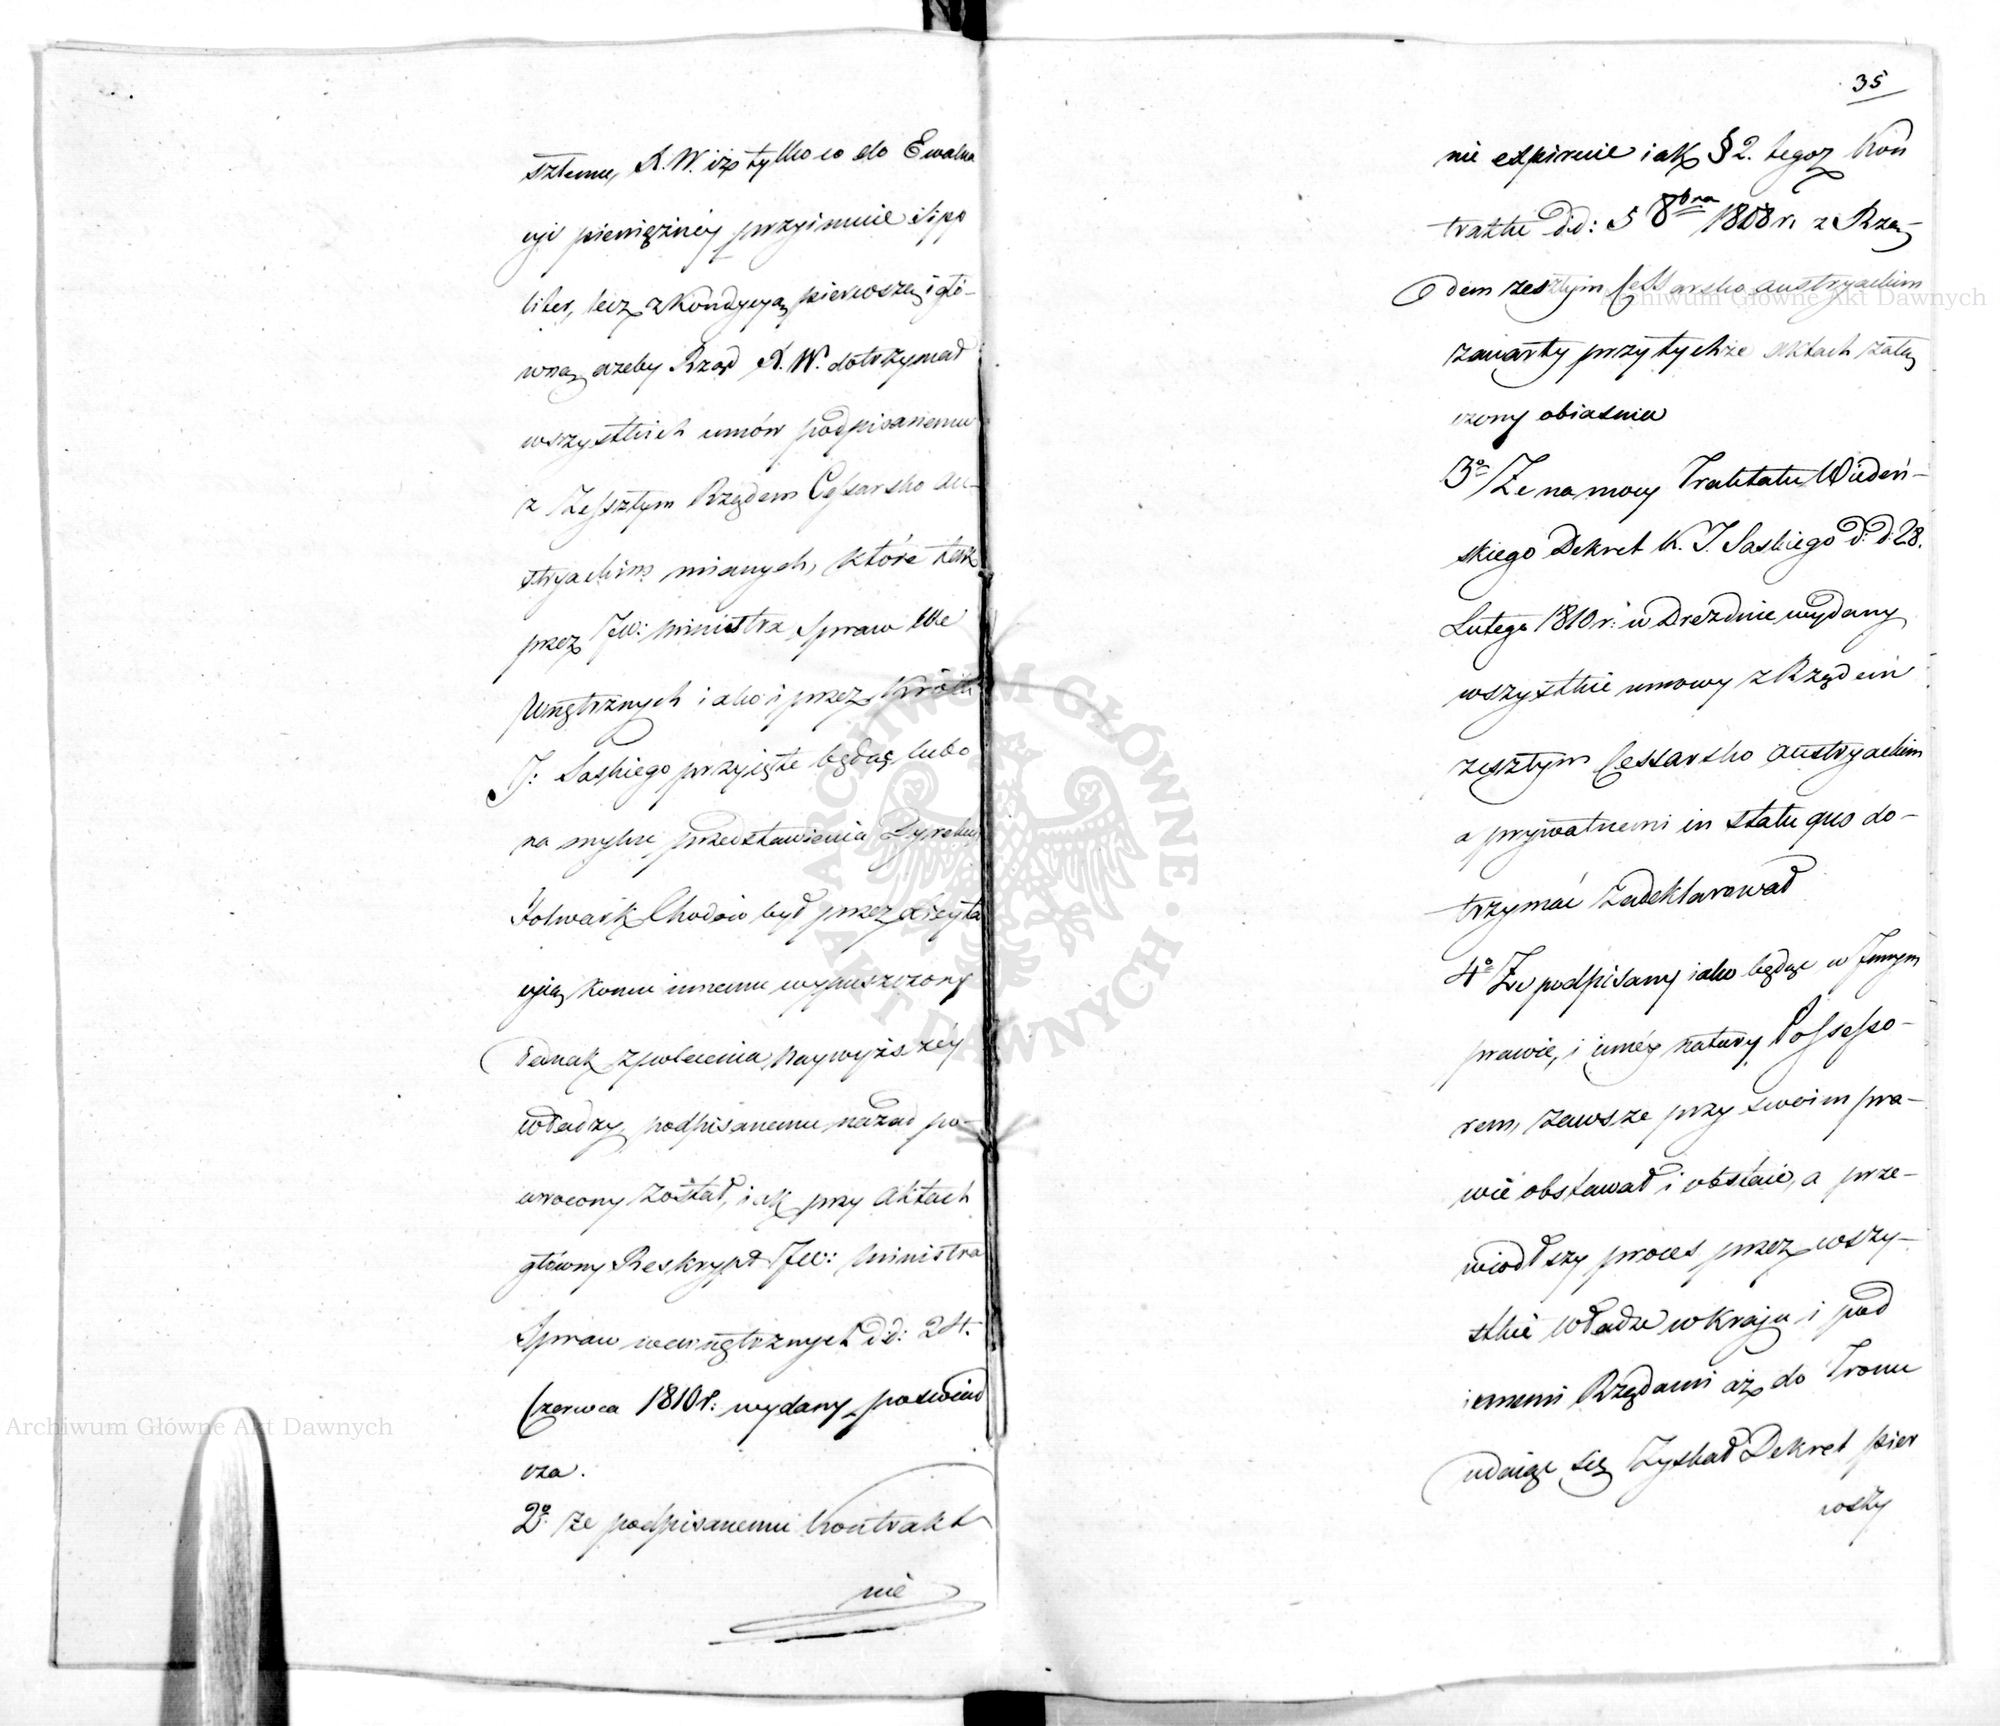 sztemu, X. W. iż tylko co do Ewalua
cyi pieniężney przyimuie sipo
liter, lecz z Kondycyą pierwszą i głó-
wną, ażeby Rząd X. W. dotrzymał
wszystkich umów podpisanemu
z Zeszłym Rządem Cessarsko Au-
stryackim mianych, które tak
przez JW: Ministra Spraw We
wnętrznych iako i przez Króla
J: Saskiego przyięte będąc, lubo
na mylne przedstawienia Dyrekcyi
Folwark Chodów był przez licyta
cyią komu innemu wypuszczony
Jednak z polecenia naywyższéy
władzy, podpisanemu nazad po-
wrócony został, iak przy Aktach
główny Reskrypt JW: Ministra
Spraw wewnętrznych dd: 24.
Czerwca 1810 r: wydany poświad
cza.
2º Że podpisanemu Kontrakt
nie
35
nie exspiruie iak § 2. tegoż Kon
traktu dd: 5 8bra 1808 r. z Rzą-
dem zeszłym Cessarsko austryackim
zawarty przy tychże Aktach załą
czony obiasnia
3º Że na mocy Traktatu Wiedeń-
skiego Dekret K. J. Saskiego d. d. 28.
Lutego 1810 r: w Dreźdnie wydany
wszystkie umowy z Rządem
zeszłym Cessarsko austryackim
a prywatnemi in statu quo do-
trzymać zadeklarował
4º Że podpisany iako będąc w Innym
prawie, i innéy natury Possesso-
rem, zawsze przy swoim pra-
wie obstawał i obstaie, a prze-
wiódłszy proces przez wszy-
stkie Władze w kraju i pod
innemi Rządami aż do Tronu
udaiąc się Zyskał Dekret pier
wszy
Archiwum Główne Akt Dawnych
Archiwum Główne Akt Dawnych
ARCHIWUM GŁÓWNE AKT DAWNYCH